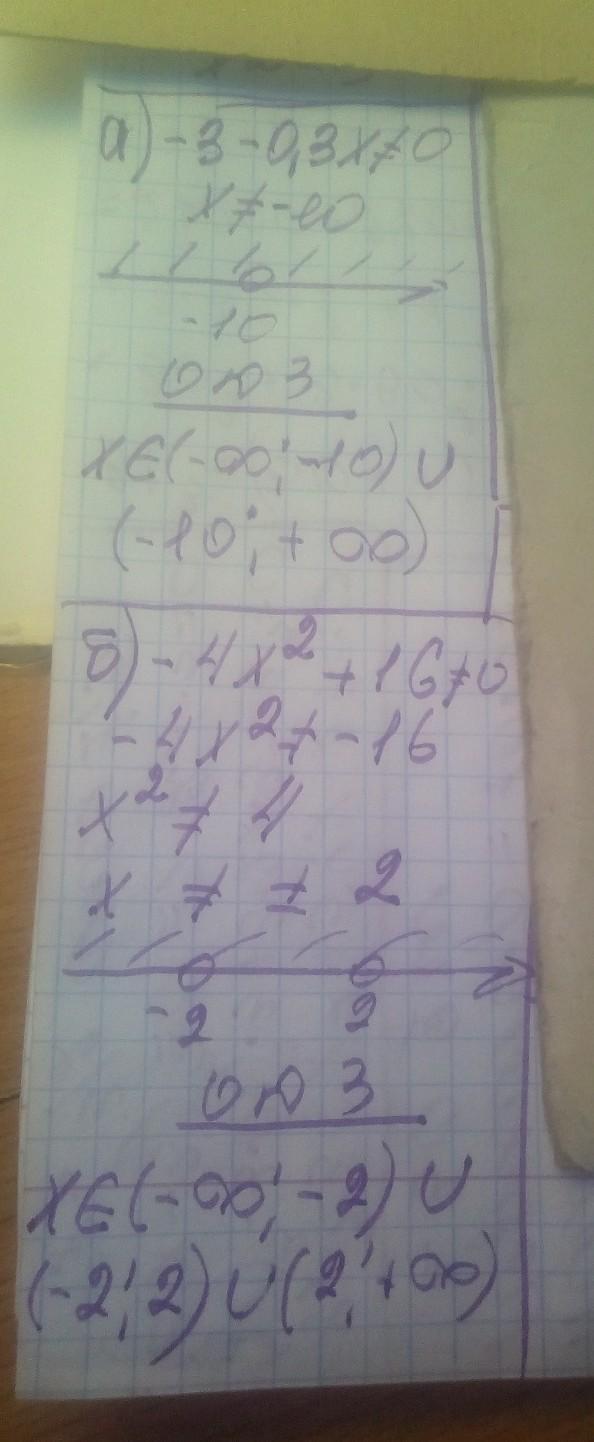 а) -3 - 0,3x ≠ 0
x ≠ -10
-10
ОДЗ
x ∈ (-∞; -10) ∪
(-10; + ∞)
б) - 4x² + 16 ≠ 0
- 4x² ≠ - 16
x² ≠ 4
x ≠ ± 2
-2 2
ОДЗ
x ∈ (-∞; -2) ∪
(-2; 2) ∪ (2; +∞)